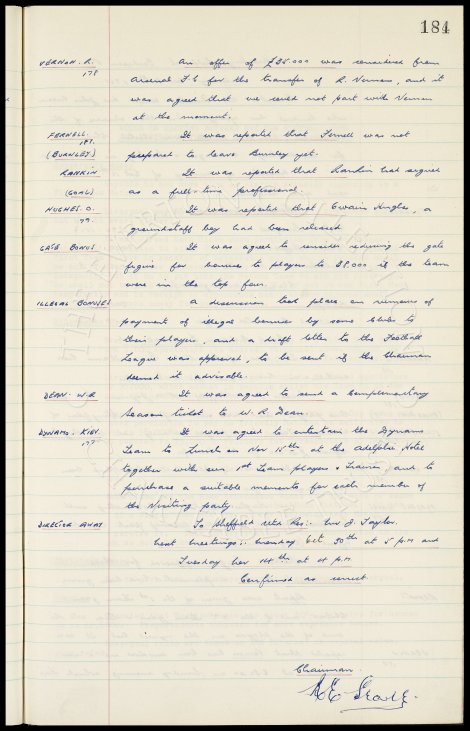 184
VERNON. R. An offer of £35.000 was considered from
178 Arsenal F.C for the transfer of R. Vernon, and it
was agreed that we could not part with Vernon
at the moment.
FERNELL. It was reported that Fernell was not
181.
(BURNLEY) prepared to leave Burnley yet.
RANKIN It was reported that Rankin had signed
(GOAL) as a full-time professional.
HUGHES. O. It was reported that Owain Hughes, a
79. groundstaff boy had been released
GATE BONUS. It was agreed to consider reducing the gate
figure for bonuses to players to 38,000 if the team
were in the top four.
ILLEGAL BONUSES A discussion took place on rumours of
payment of illegal bonuses by some Clubs to
their players, and a draft letter to the Football
League was approved, to be sent if the Chairman
deemed it advisable.
DEAN. W.R It was agreed to send a Complimentary
Season Ticket to W. R Dean.
DYNAMO. KIEV. It was agreed to entertain the Dynamo
177 Team to Lunch on Nov 15th at the Adelphi Hotel
together with our 1st Team players & Trainer, and to
purchase a suitable memento for each member of
the Visiting party.
DIRECTOR AWAY To Sheffield Utd Res:- Mr J. Taylor.
Next Meetings:- Monday Oct 30th at 5 p.m and
Tuesday Nov 14th at 4 p.m.
Confirmed as correct
Chairman.